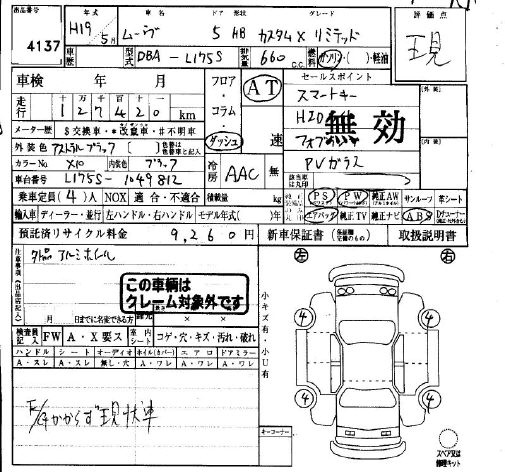 年式 ドア 形状 グレード 評価点
4137 H19 5月 ムーヴ 5 HB カスタムX リミテッド 現
車歴 型式 DBA-L175S 排気量 660 c.c. 燃料 ガソリン・( )・軽油
車検 年 月 フロア・コラム・ダッシュ AT 速 セールスポイント
走行 十万千百十一 127420 km スマートキー
メーター歴 $交換車・*改竄車・#不明車 無効
外装色 アストラルブラック
カラーNo. X10 内装色 ブラック 冷房 AAC 無 PVガラス
車台番号 L175S-1049812
乗車定員(4)人 NOX 適合・不適合 積載量 kg PS PW 純正AW サンルーフ 革シート
輸入車 ディーラー・並行 左ハンドル・右ハンドル モデル年式( )年 エアバック 純正TV 純正ナビ ABS
預託済リサイクル料金 9,260円 新車保証書 取扱説明書
注意事項(出品店記入) 社外アルミホイール 左 右
この車輌は
クレーム対象外です
月 日までに名変できる方 小キズ有・小U有
検査員記入 FW A・X要ス 室内シート コゲ・穴・キズ・汚れ・破れ
ハンドル シート オーディオ ホイル(カバー) エアロ ドアミラー
A・スレ A・スレ 無し・穴 A・ワレ A・ワレ A・ワレ
4 4
4 4
E/Gかからず現状車
キーコーナー
スペアタイヤ又は
修理キット